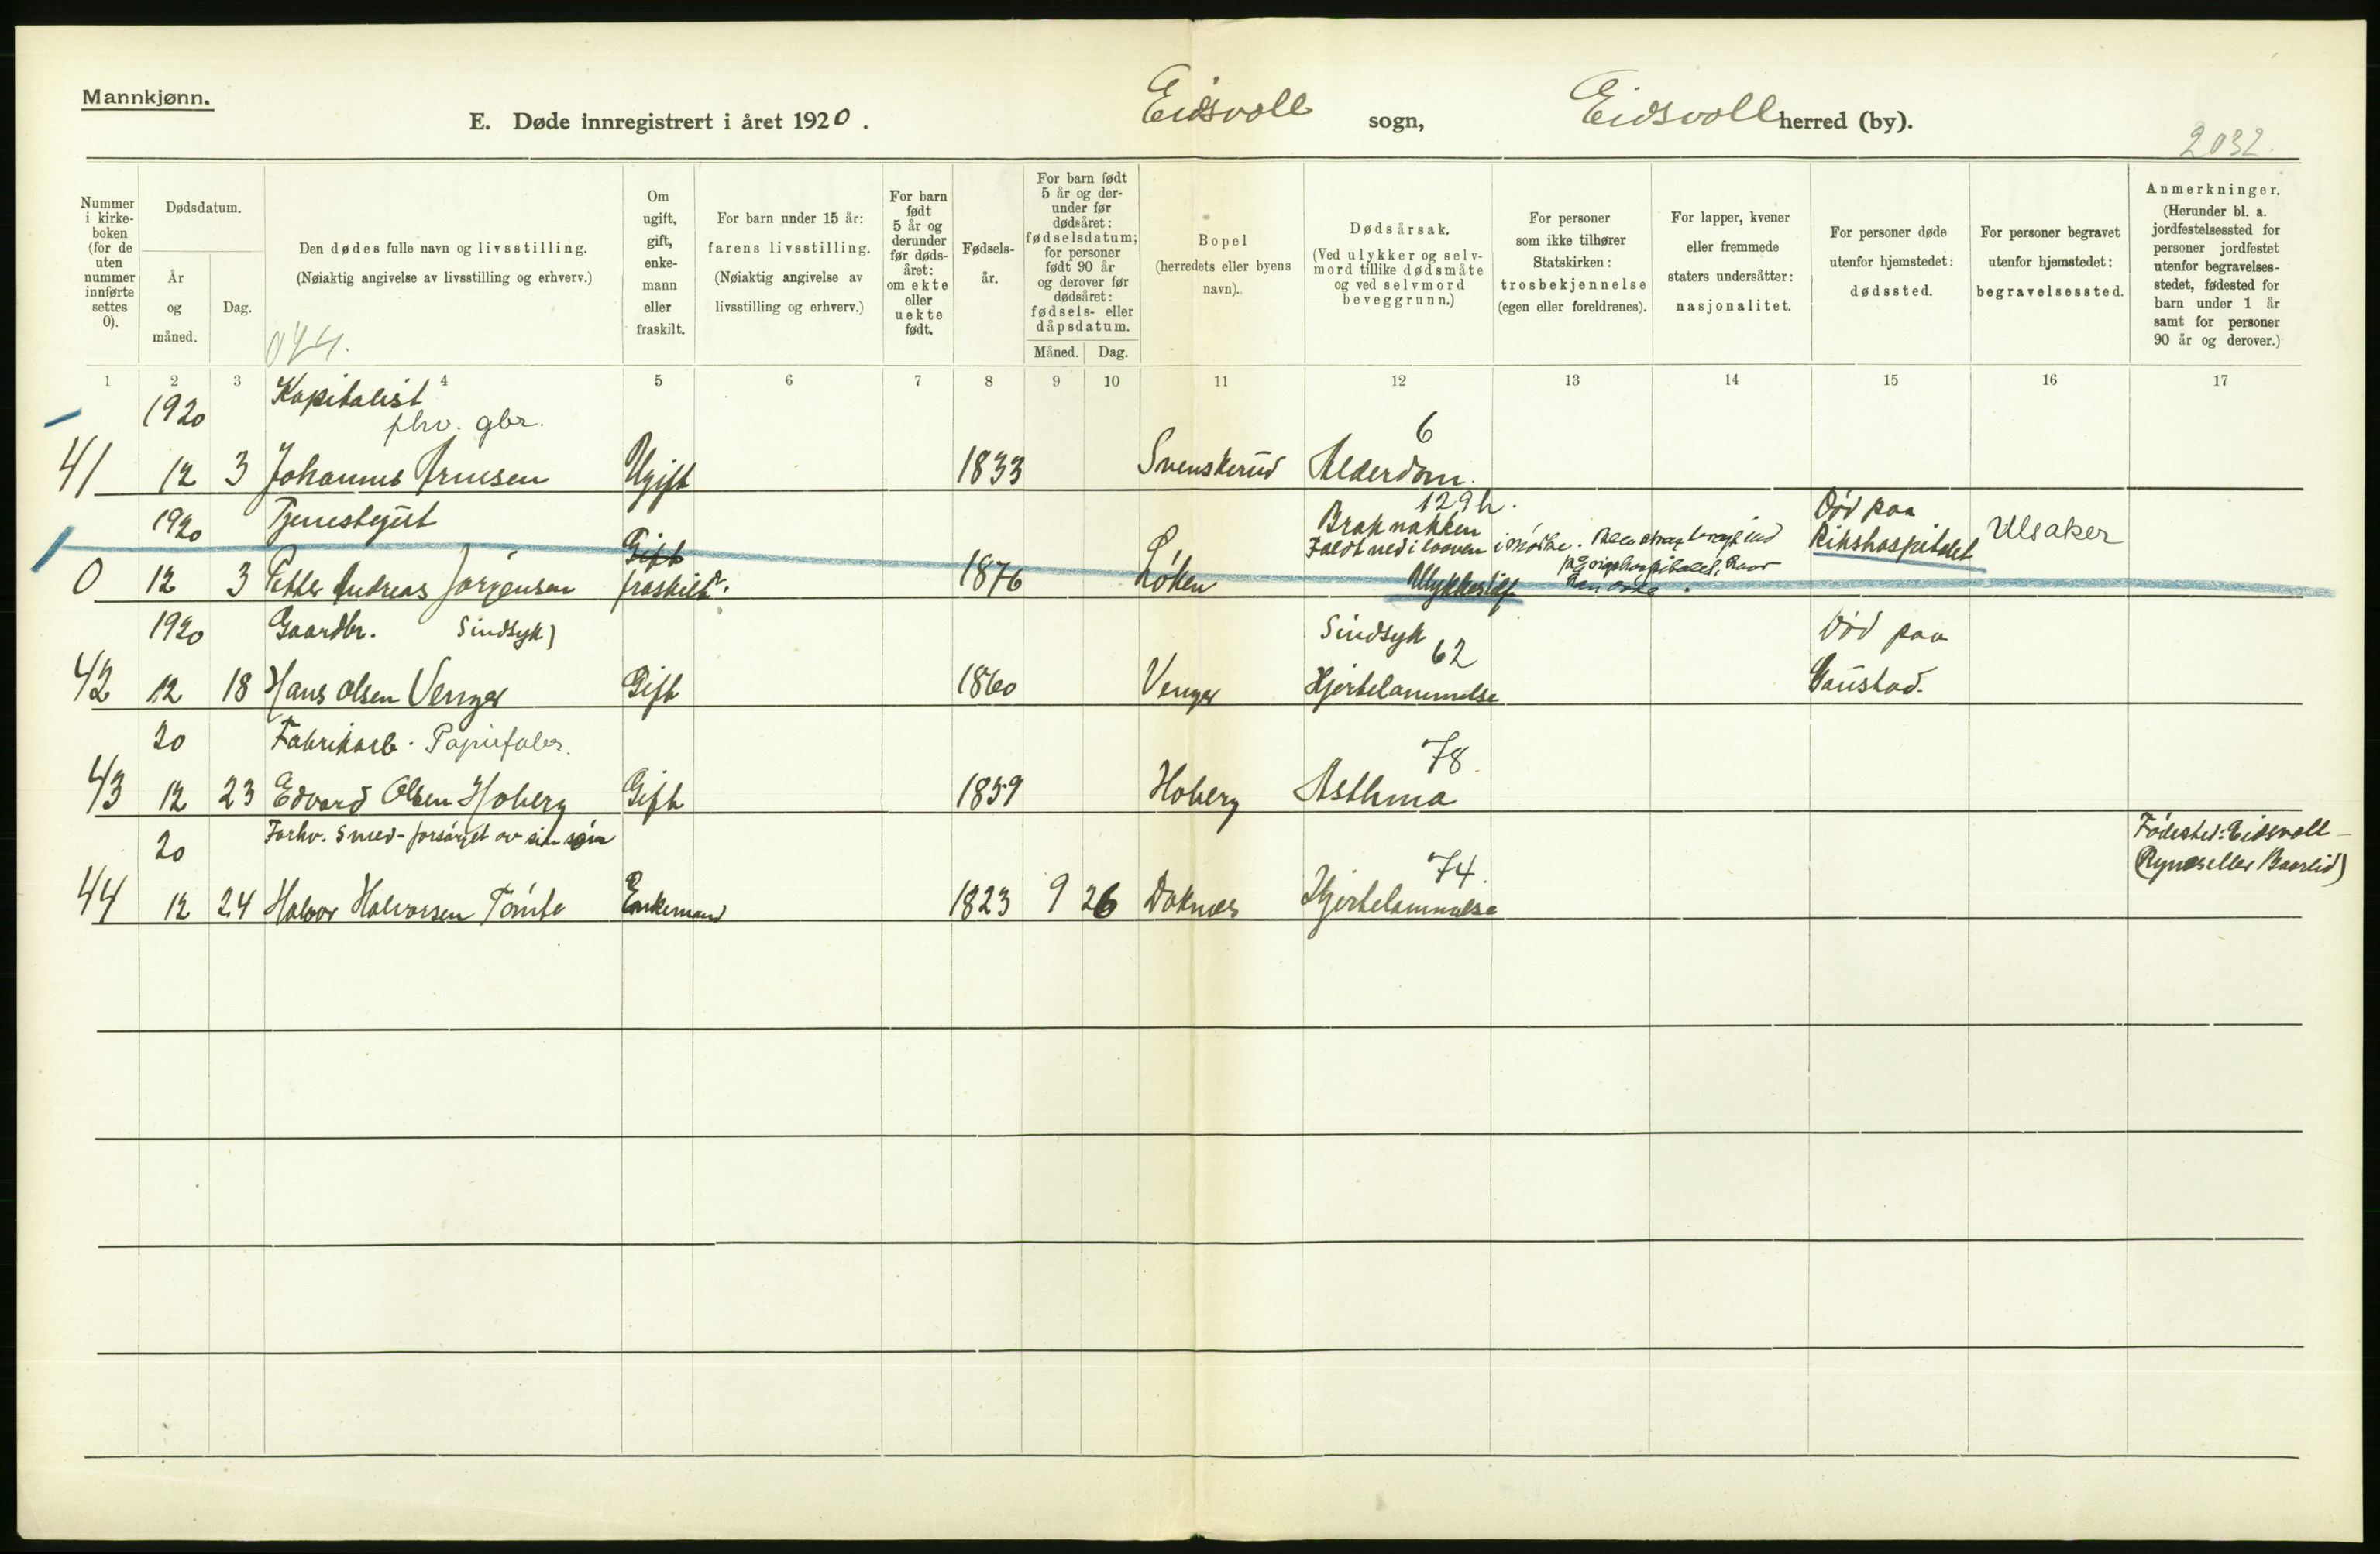 Mannkjønn.
E. Døde innregistrert i året 1920. Eidsvoll sogn, Eidsvoll herred (by).
2032.
Nummer i kirke-boken (for de uten nummer innførte settes 0).
Dødsdatum.
År og måned.
Dag.
Den dødes fulle navn og livsstilling.
(Nøiaktig angivelse av livsstilling og erhverv.)
Om ugift, gift, enke-mann eller fraskilt.
For barn under 15 år: farens livsstilling.
(Nøiaktig angivelse av livsstilling og erhverv.)
For barn født 5 år og derunder før døds-året: om ekte eller uekte født.
Fødsels-år.
For barn født 5 år og der-under før dødsåret: fødselsdatum; for personer født 90 år og derover før dødsåret: fødsels- eller dåpsdatum.
Måned. Dag.
Bopel
(herredets eller byens navn).
Dødsårsak.
(Ved ulykker og selv-mord tillike dødsmåte og ved selvmord beveggrunn.)
For personer som ikke tilhører Statskirken: trosbekjennelse (egen eller foreldrenes).
For lapper, kvener eller fremmede staters undersåtter: nasjonalitet.
For personer døde utenfor hjemstedet: dødssted.
For personer begravet utenfor hjemstedet: begravelsessted.
Anmerkninger.
(Herunder bl. a. jordfestelsessted for personer jordfestet utenfor begravelses-stedet, fødested for barn under 1 år samt for personer 90 år og derover.)
1 2 3 4 5 6 7 8 9 10 11 12 13 14 15 16 17
1920 Kapitalist
fhv. gbr. 6
41 12 3 Johannes Arnesen Ugift 1833 Svenskerud Alderdom.
1920 Tjenestegut Gift 129 h. Brak nakken Død paa
Faldt ned i laaven i mørke. Rikshospitalet Ullsaker
0 12 3 Petter Andreas Jørgensen fraskilt 1876 Løken Ulykkestilf.
1920 Gaardbr. Sindsyk) Sindsyk 62 Død paa
42 12 18 Hans Olsen Venger Gift 1860 Venger Hjertelammelse Gaustad.
20 Fabrikarb. Papirfabr. 78.
43 12 23 Edvard Olsen Hoberg Gift 1859 Hoberg Asthma
20 Forhv. Smed - forsørget av sin søn 74. Fødested: Eidsvoll
44 12 24 Halvor Halvorsen Tømte Enkemand 1823 9 26 Doknes Hjertelammelse